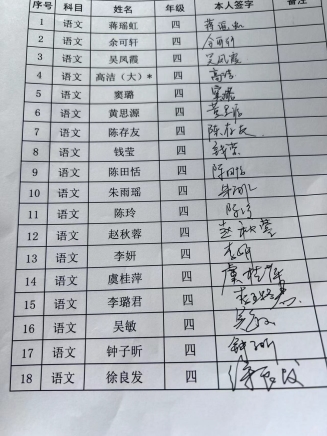 序号 科目 姓名 年级 本人签字 备注
1 语文 蒋瑶虹 四 蒋瑶虹
2 语文 余可轩 四 余可轩
3 语文 吴凤霞 四 吴凤霞
4 语文 高洁（大）* 四 高洁
5 语文 窦璐 四 窦璐
6 语文 黄思源 四 黄思源
7 语文 陈存友 四 陈存友
8 语文 钱莹 四 钱莹
9 语文 陈田恬 四 陈田恬
10 语文 朱雨瑶 四
11 语文 陈玲 四 陈玲
12 语文 赵秋蓉 四 赵秋蓉
13 语文 李妍 四 李妍
14 语文 虞桂萍 四 虞桂萍
15 语文 李璐君 四
16 语文 吴敏 四 吴敏
17 语文 钟子昕 四 钟子昕
18 语文 徐良发 四 徐良发